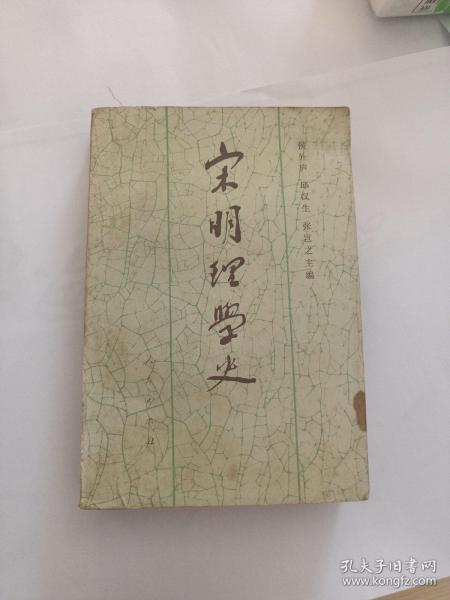 侯外庐 邱汉生 张岂之主编
宋明理学史
人民出版社
孔夫子旧书网
www.kongfz.com